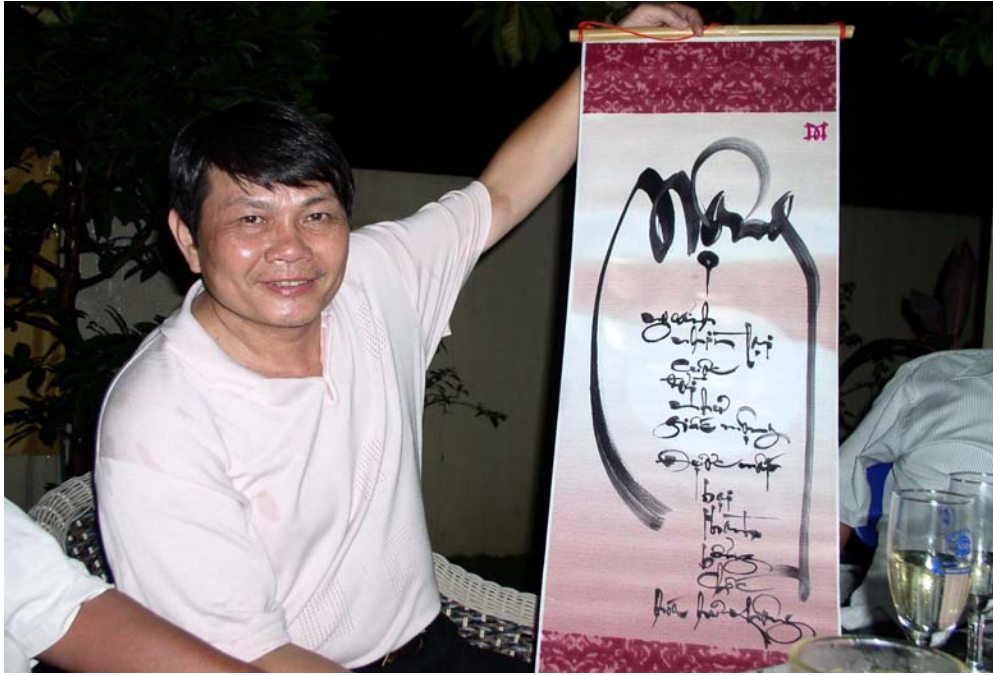 Mộng
ngoảnh
nhìn lại
cuộc
đời
như
giấc mộng
Được mất
bại
thành
bỗng
chốc
hóa hư không